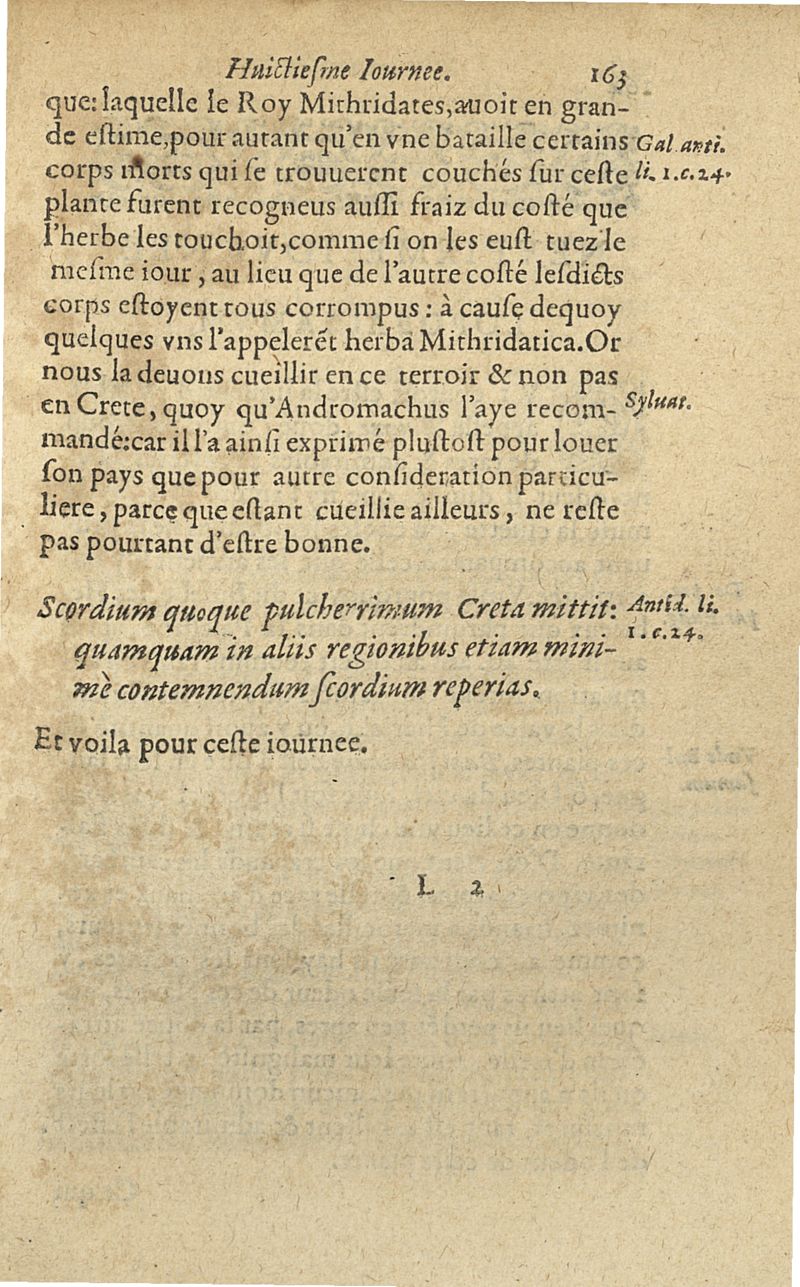 Huictieſme Iournee. 163
que: laquelle le Roy Mithridates, auoit en gran-
de eſtime, pour autant qu'en vne bataille certains Gal. anti.
corps morts qui ſe trouuerent couchés ſur ceſte li. 1. c. 24.
plante furent recogneus auſſi fraiz du coſté que
l'herbe les touchoit, comme ſi on les euſt tuez le
meſme iour, au lieu que de l'autre coſté leſdicts
corps eſtoyent tous corrompus : à cauſe dequoy
quelques vns l'appelerẽt herba Mithridatica. Or
nous la deuons cueillir en ce terroir & non pas
en Crete, quoy qu'Andromachus l'aye recom- Syluat.
mandé: car il l'a ainſi exprimé pluſtoſt pour louer
ſon pays que pour autre conſideration particu-
liere, parce que eſtant cueillie ailleurs, ne reſte
pas pourtant d'eſtre bonne.
Scordium quoque pulcherrimum Creta mittit: Antid. li.
quamquam in aliis regionibus etiam mini- 1. c. 24.
mè contemnendum ſcordium reperias.
Et voila pour ceſte iournee.
L 2